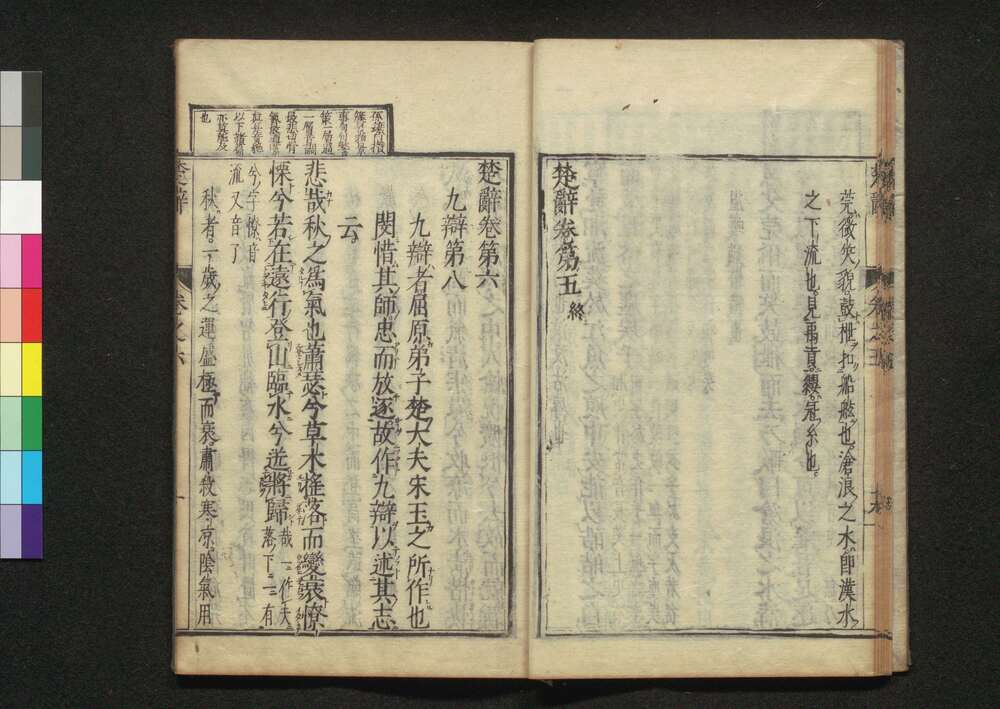 莞微笑貌鼓枻扣船舷也滄浪之水卽漢水
之下流也見禹貢纓冠糸也
楚辭卷第五終
楚辭卷第六
九辯第八
九辯者屈原弟子楚大夫宋玉之所作也
閔惜其師忠而放逐故作九辯以述其志
云
悲哉秋之爲氣也蕭瑟兮草木搖落而變衰憭
慄兮若在遠行登山臨水兮送將歸哉一作夫落下一有
兮字憭音
流又音了
秋者一歲之運盛極而衰肅殺寒凉陰氣用
楚辭
卷之六
一